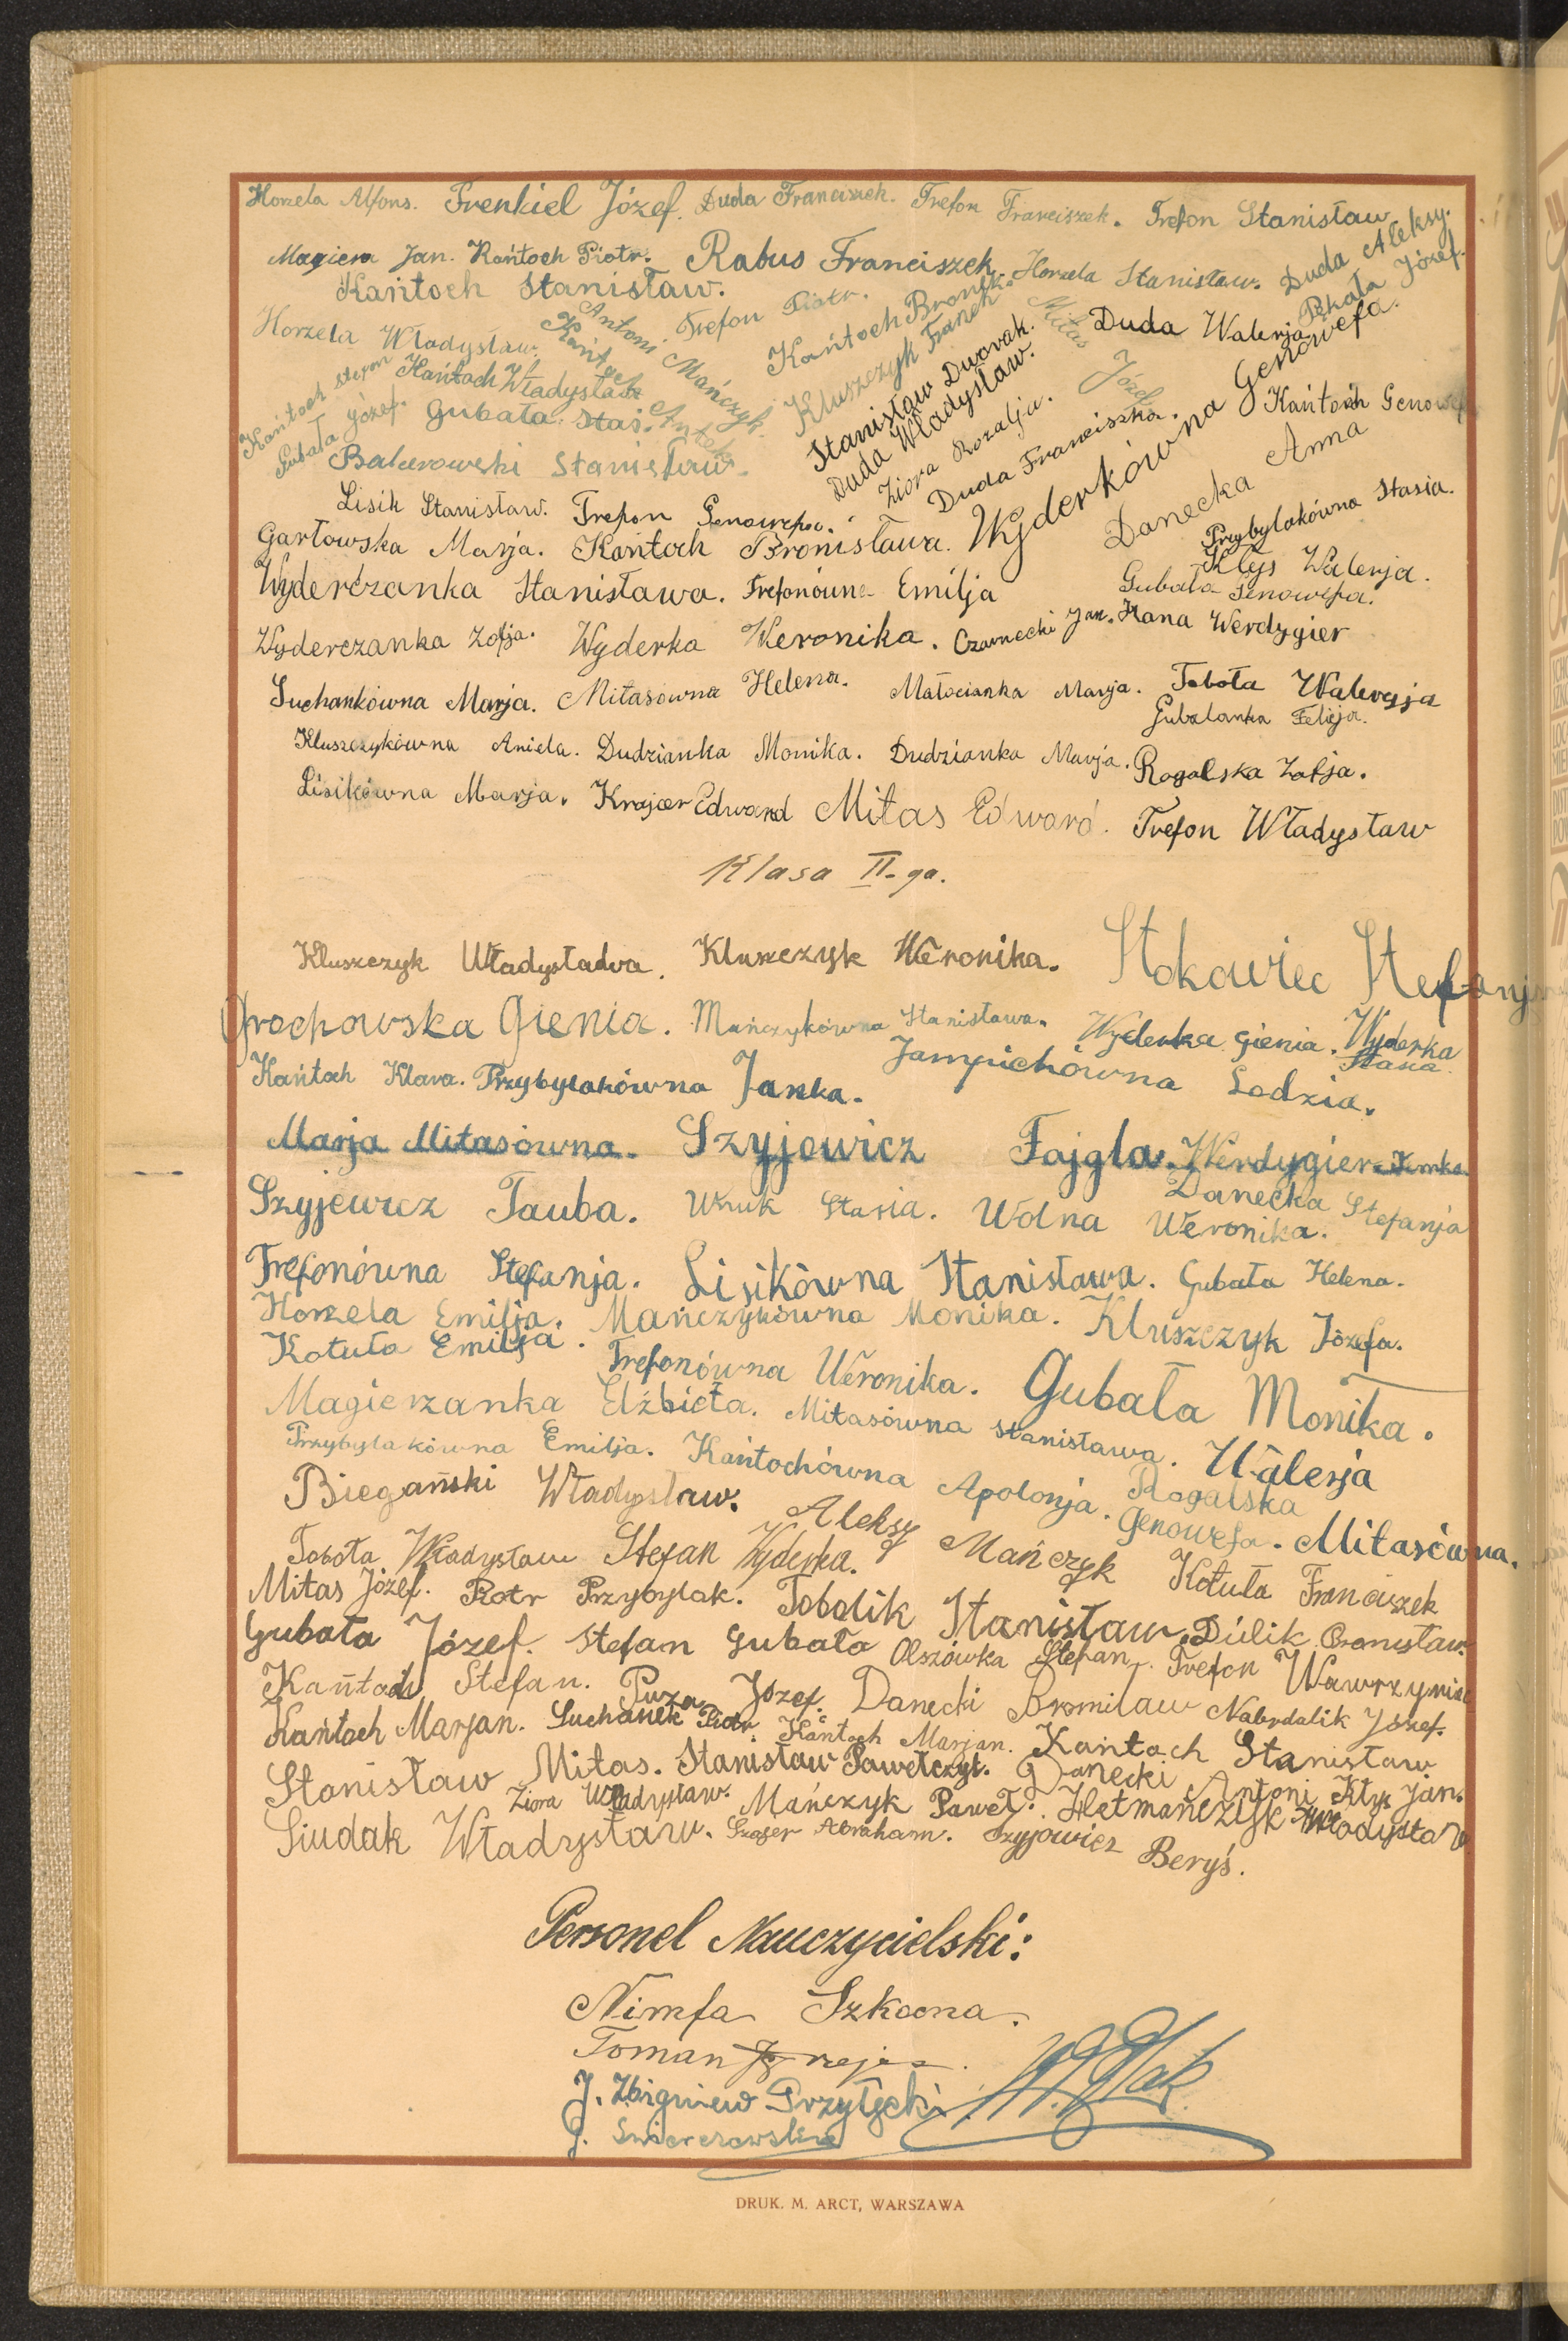 Horzela Alfons. Frenkiel Józef. Duda Franciszek. Trefon Franciszek. Trefon Stanisław
Magiera Jan. Kańtoch Piotr. Rabus Franciszek. Horzela Stanisław. Duda Aleksy.
Kańtoch Stanisław. Trefon Piotr. Kańtoch Bronek. Józef.
Horzela Władysław. Antoni Mańczyk. Kluszczyk Franek Mitas Józef Duda Walerja
Kańtoch Stefan Kańtoch Władysław Kańtoch Antek Stanisław Dworak.
Gubała Józef. Gubała Staś. Duda Władysław. Wyderkówna Genowefa. Kańtoch
Balcerowski Stanisław. Ziora Rozalja. Duda Franciszka. Danecka Anna
Lisik Stanisław. Trefon Genowefa. Przybylakówna Stasia.
Garłowska Marja. Kańtoch Bronisława. Kłyś Walerja.
Wyderczanka Stanisława. Trefonówna Emilja Gubała Genowefa.
Wyderczanka Zofja. Wyderka Weronika. Czarnecki Jan. Hana Werdygier
Suchankówna Marja. Mitasówna Helena. Małocianka Marja. Toboła Waleryja
Gubalanka Felicja.
Kluszczykówna Aniela. Dudzianka Monika. Dudzianka Marja. Rogalska Zofja.
Lisikówna Marja. Krajcer Edward Mitas Edward. Trefon Władysław
Klasa II-ga.
Kluszczyk Władysława. Kluszczyk Weronika. Stokowiec Stefanja
Grochowska Gienia. Mańczykówna Stanisława. Wyderka Gienia. Wyderka Stasia.
Kańtoch Klara. Przybylakówna Janka. Jampichówna Lodzia.
Marja Mitasówna. Szyjowicz Fajgla. Werdygier
Szyjewicz Tauba. Wruk Stasia. Wolna Weronika. Danecka Stefanja
Trefonówna Stefanja. Lisikówna Stanisława. Gubała Helena.
Horzela Emilja. Mańczykówna Monika. Kluszczyk Józefa.
Kotuła Emilja. Trefonówna Weronika. Gubała Monika.
Magierzanka Elżbieta. Mitasówna Stanisława. Walerja
Przybylakówna Emilja. Kańtochówna Apolonja. Rogalska
Biegański Władysław. Aleksy Mańczyk Genowefa. Mitasówna.
Toboła Władysław Stefan Wyderka. Kotuła Franciszek
Mitas Józef. Piotr Przybylak. Tobolik Stanisław. Dulik Bronisław.
Gubała Józef. Stefan Gubała Olszówka Stefan. Trefon Wawrzyniec
Kańtoch Stefan. Puza Józef. Danecki Bromiław Nabrdalik Józef.
Kańtoch Marjan. Suchanek Piotr Kańtoch Marjan. Kańtoch Stanisław.
Stanisław Mitas. Stanisław Pawełczyk. Danecki Antoni Kłyś Jan.
Ziora Władysław. Mańczyk Paweł. Hetmańczyk Władysław
Siudak Władysław. Abraham. Szyjowicz Beryś.
Personel Nauczycielski:
Nimfa
Toman
J. Zbigniew Przyłęcki
J.
DRUK. M. ARCT, WARSZAWA